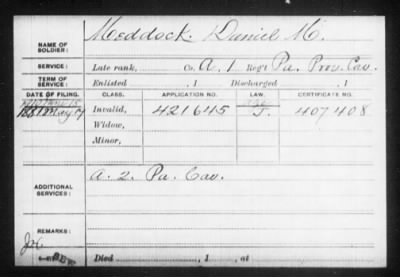 Meddock, Daniel M.
NAME OF
SOLDIER:
SERVICE: Late rank, Co. A, 1 Reg't Pa. Prov. Cav.
TERM OF
SERVICE: Enlisted , 1 Discharged , 1
DATE OF FILING. CLASS. APPLICATION NO. LAW. CERTIFICATE NO.
1881 May 17 Invalid, 421645 J. 407408
Widow,
Minor,
ADDITIONAL
SERVICES: A. 2. Pa. Cav.
REMARKS:
Died , 1 , at